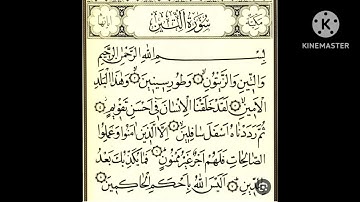 سُورَةُ التِّينِ
مكية
KINEMASTER
بِسْمِ اللَّهِ الرَّحْمَٰنِ الرَّحِيمِ
وَالتِّينِ وَالزَّيْتُونِ وَطُورِ سِينِينَ وَهَٰذَا الْبَلَدِ
الْأَمِينِ لَقَدْ خَلَقْنَا الْإِنْسَانَ فِي أَحْسَنِ تَقْوِيمٍ
ثُمَّ رَدَدْنَاهُ أَسْفَلَ سَافِلِينَ إِلَّا الَّذِينَ آمَنُوا وَعَمِلُوا
الصَّالِحَاتِ فَلَهُمْ أَجْرٌ غَيْرُ مَمْنُونٍ فَمَا يُكَذِّبُكَ بَعْدُ
بِالدِّينِ أَلَيْسَ اللَّهُ بِأَحْكَمِ الْحَاكِمِينَ